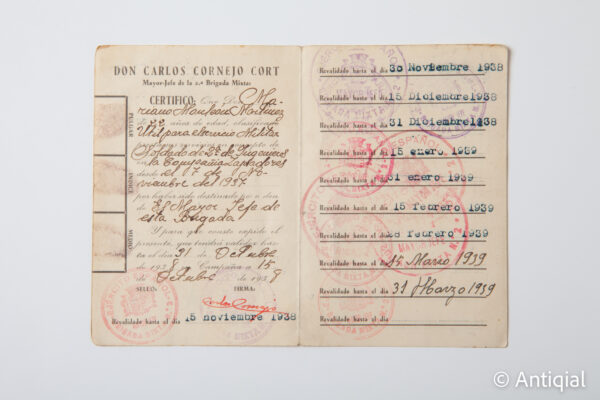 DON CARLOS CORNEJO CORT
Mayor-Jefe de la 2.ª Brigada Mixta
CERTIFICO: Que Don Ma-
riano Montesu Martinez
de 22 años de edad, clasificado
Util para el servicio Militar
Soldado de 2ª de Ingenieros
la Compañia Zapadores
desde el 17 de No-
viembre de 1937
por haber sido destinado a
El Mayor Jefe de
esta Brigada
Y para que conste expido el
presente, que tendrá validez has-
ta el día 31 de Octubre
de 1938 Campaña a 15
de Octubre de 1938
SELLO: FIRMA:
Revalidado hasta el día 15 noviembre 1938
PULGAR
INDICE
MEDIO
Revalidado hasta el día 30 Noviembre 1938
Revalidado hasta el día 15 Diciembre 1938
Revalidado hasta el día 31 Diciembre 1938
Revalidado hasta el día 15 enero 1939
Revalidado hasta el día 31 enero 1939
Revalidado hasta el día 15 febrero 1939
Revalidado hasta el día 28 febrero 1939
Revalidado hasta el día 15 Marzo 1939
Revalidado hasta el día 31 Marzo 1939
Revalidado hasta el día
© Antiqial